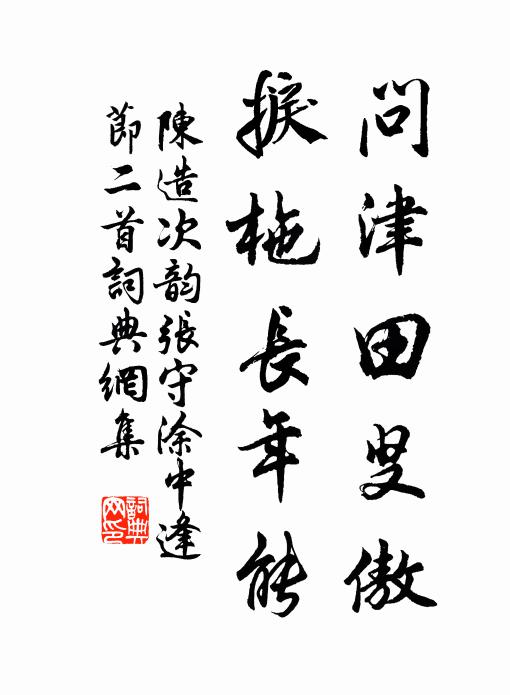 問津田叟傲
捩柂長年能
陳造次韵張守涂中逢
節二首詞典網集
詞典
网印